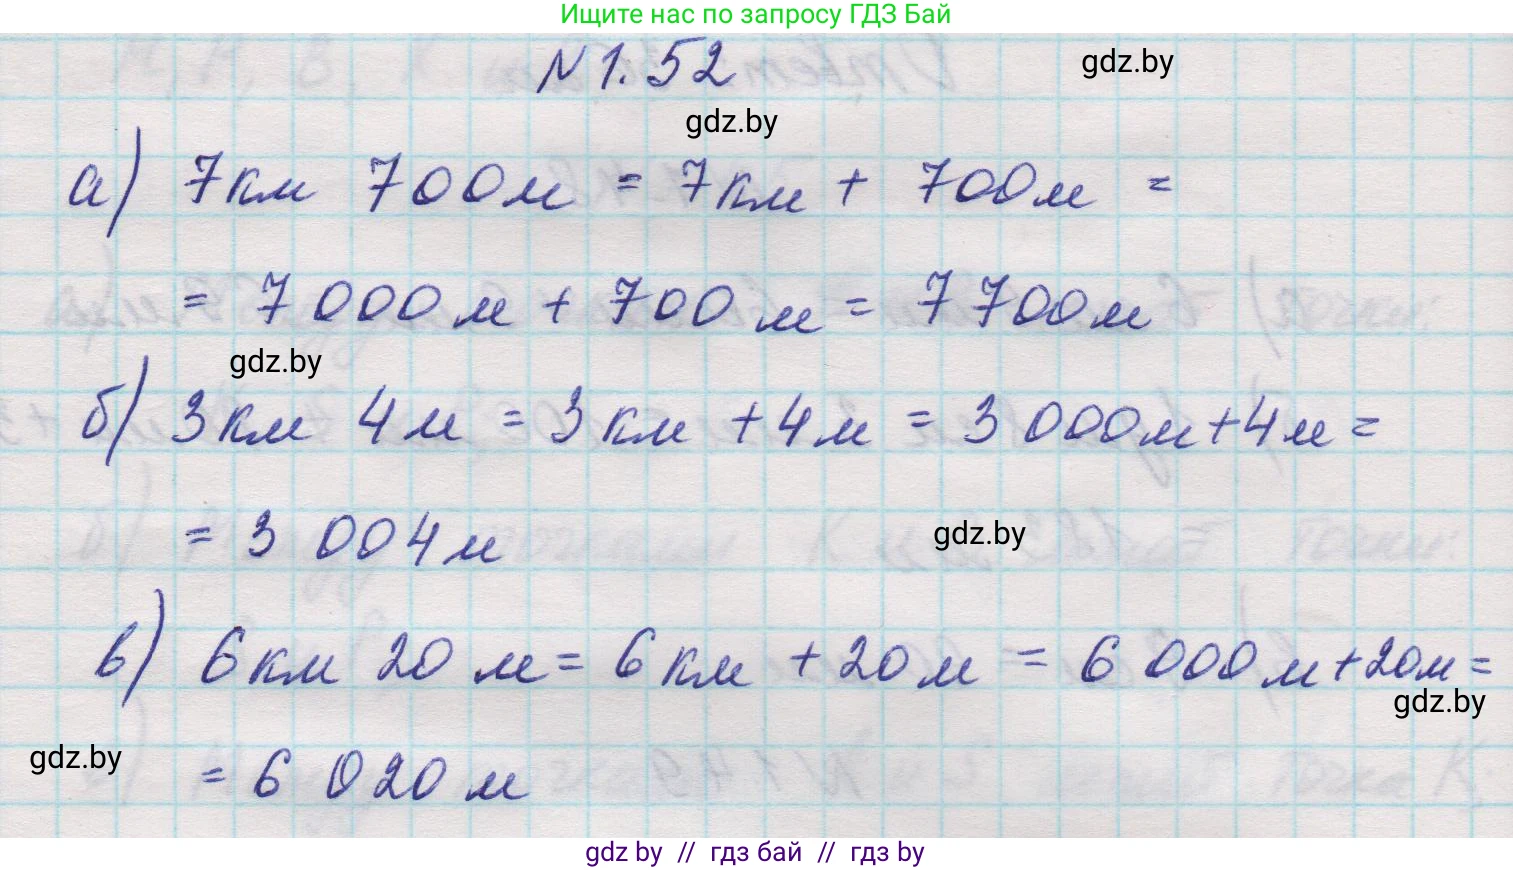 Ищите нас по запросу ГДЗ Бай
N 1.52
gdz.by
gdz.by
а) 7км 700м = 7км + 700м =
= 7 000м + 700м = 7 700м
gdz.by
б) 3км 4м = 3км + 4м = 3 000м+4м =
= 3 004м
gdz.by
в) 6км 20м = 6км + 20м = 6 000м+20м =
gdz.by
gdz.by
= 6 020м
gdz by // гдз бай // гдз by